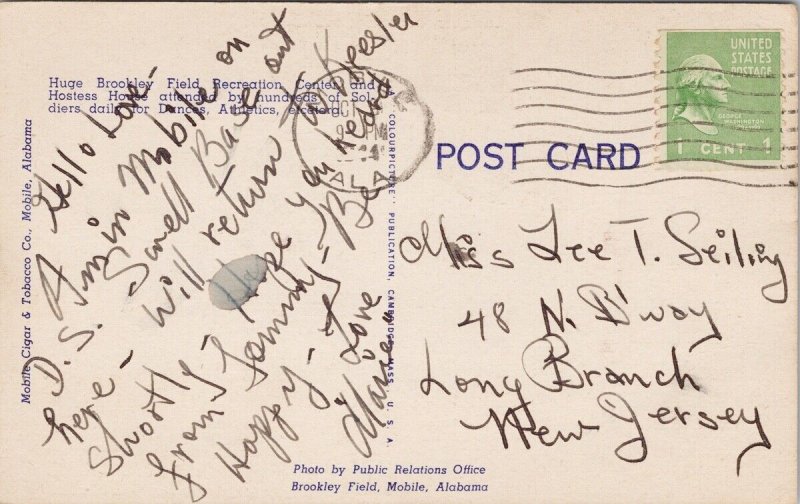 Huge Brookley Field Recreation Center and
Hostess House attended by hundreds of Sol-
diers daily for Dances, Athletics, etcetera.
Hello Love -
Am in Mobile on
D.S. Small Base out
here - Will return to Keesler
Shortly - Hope you heard
from Tommy - Be
Happy -
Love
POST CARD
UNITED
STATES
POSTAGE
GEORGE
WASHINGTON
1 CENT 1
PM
ALA
Miss Lee T. Seiling
48 N. B'way
Long Branch
New Jersey
Mobile Cigar & Tobacco Co., Mobile, Alabama
A "COLOURPICTURE" PUBLICATION, CAMBRIDGE, MASS. U. S. A.
Photo by Public Relations Office
Brookley Field, Mobile, Alabama